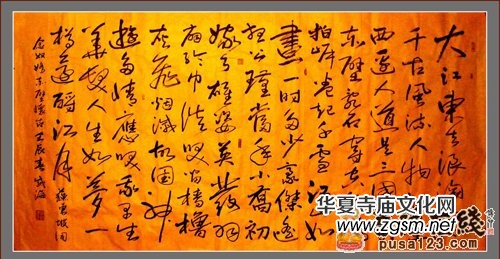 大江東去浪淘
千古風流人物
西邊人道是三國
赤壁亂石穿空
拍岸卷起千雪江山如
畫一時多少豪傑遙
想公瑾當年小喬初
嫁了雄姿英發羽
扇綸巾談笑間檣櫓
灰飛煙滅故國神
遊多情應笑我早生
華髮人生如夢一
樽還酹江月
念奴嬌赤壁懷古壬辰春
华夏寺庙文化网
pusa123.com